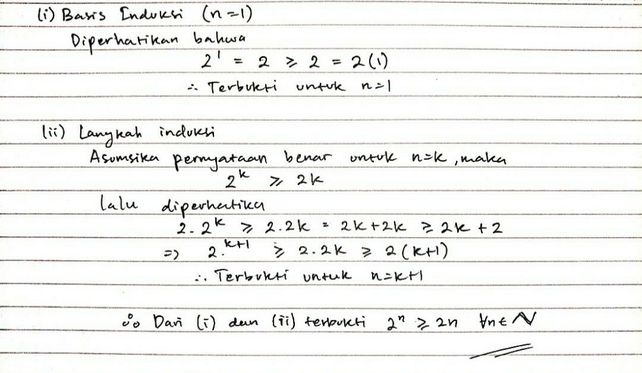 (i) Basis Induksi (n=1)
Diperhatikan bahwa
2¹ = 2 ≥ 2 = 2(1)
∴ Terbukti untuk n=1
(ii) Langkah induksi
Asumsika pernyataan benar untuk n=k, maka
2ᵏ ≥ 2k
lalu diperhatika
2.2ᵏ ≥ 2.2k = 2k+2k ≥ 2k+2
=> 2.ᵏ⁺¹ ≥ 2.2k ≥ 2(k+1)
∴ Terbukti untuk n=k+1
∴ Dari (i) dan (ii) terbukti 2ⁿ ≥ 2n ∀n∈N